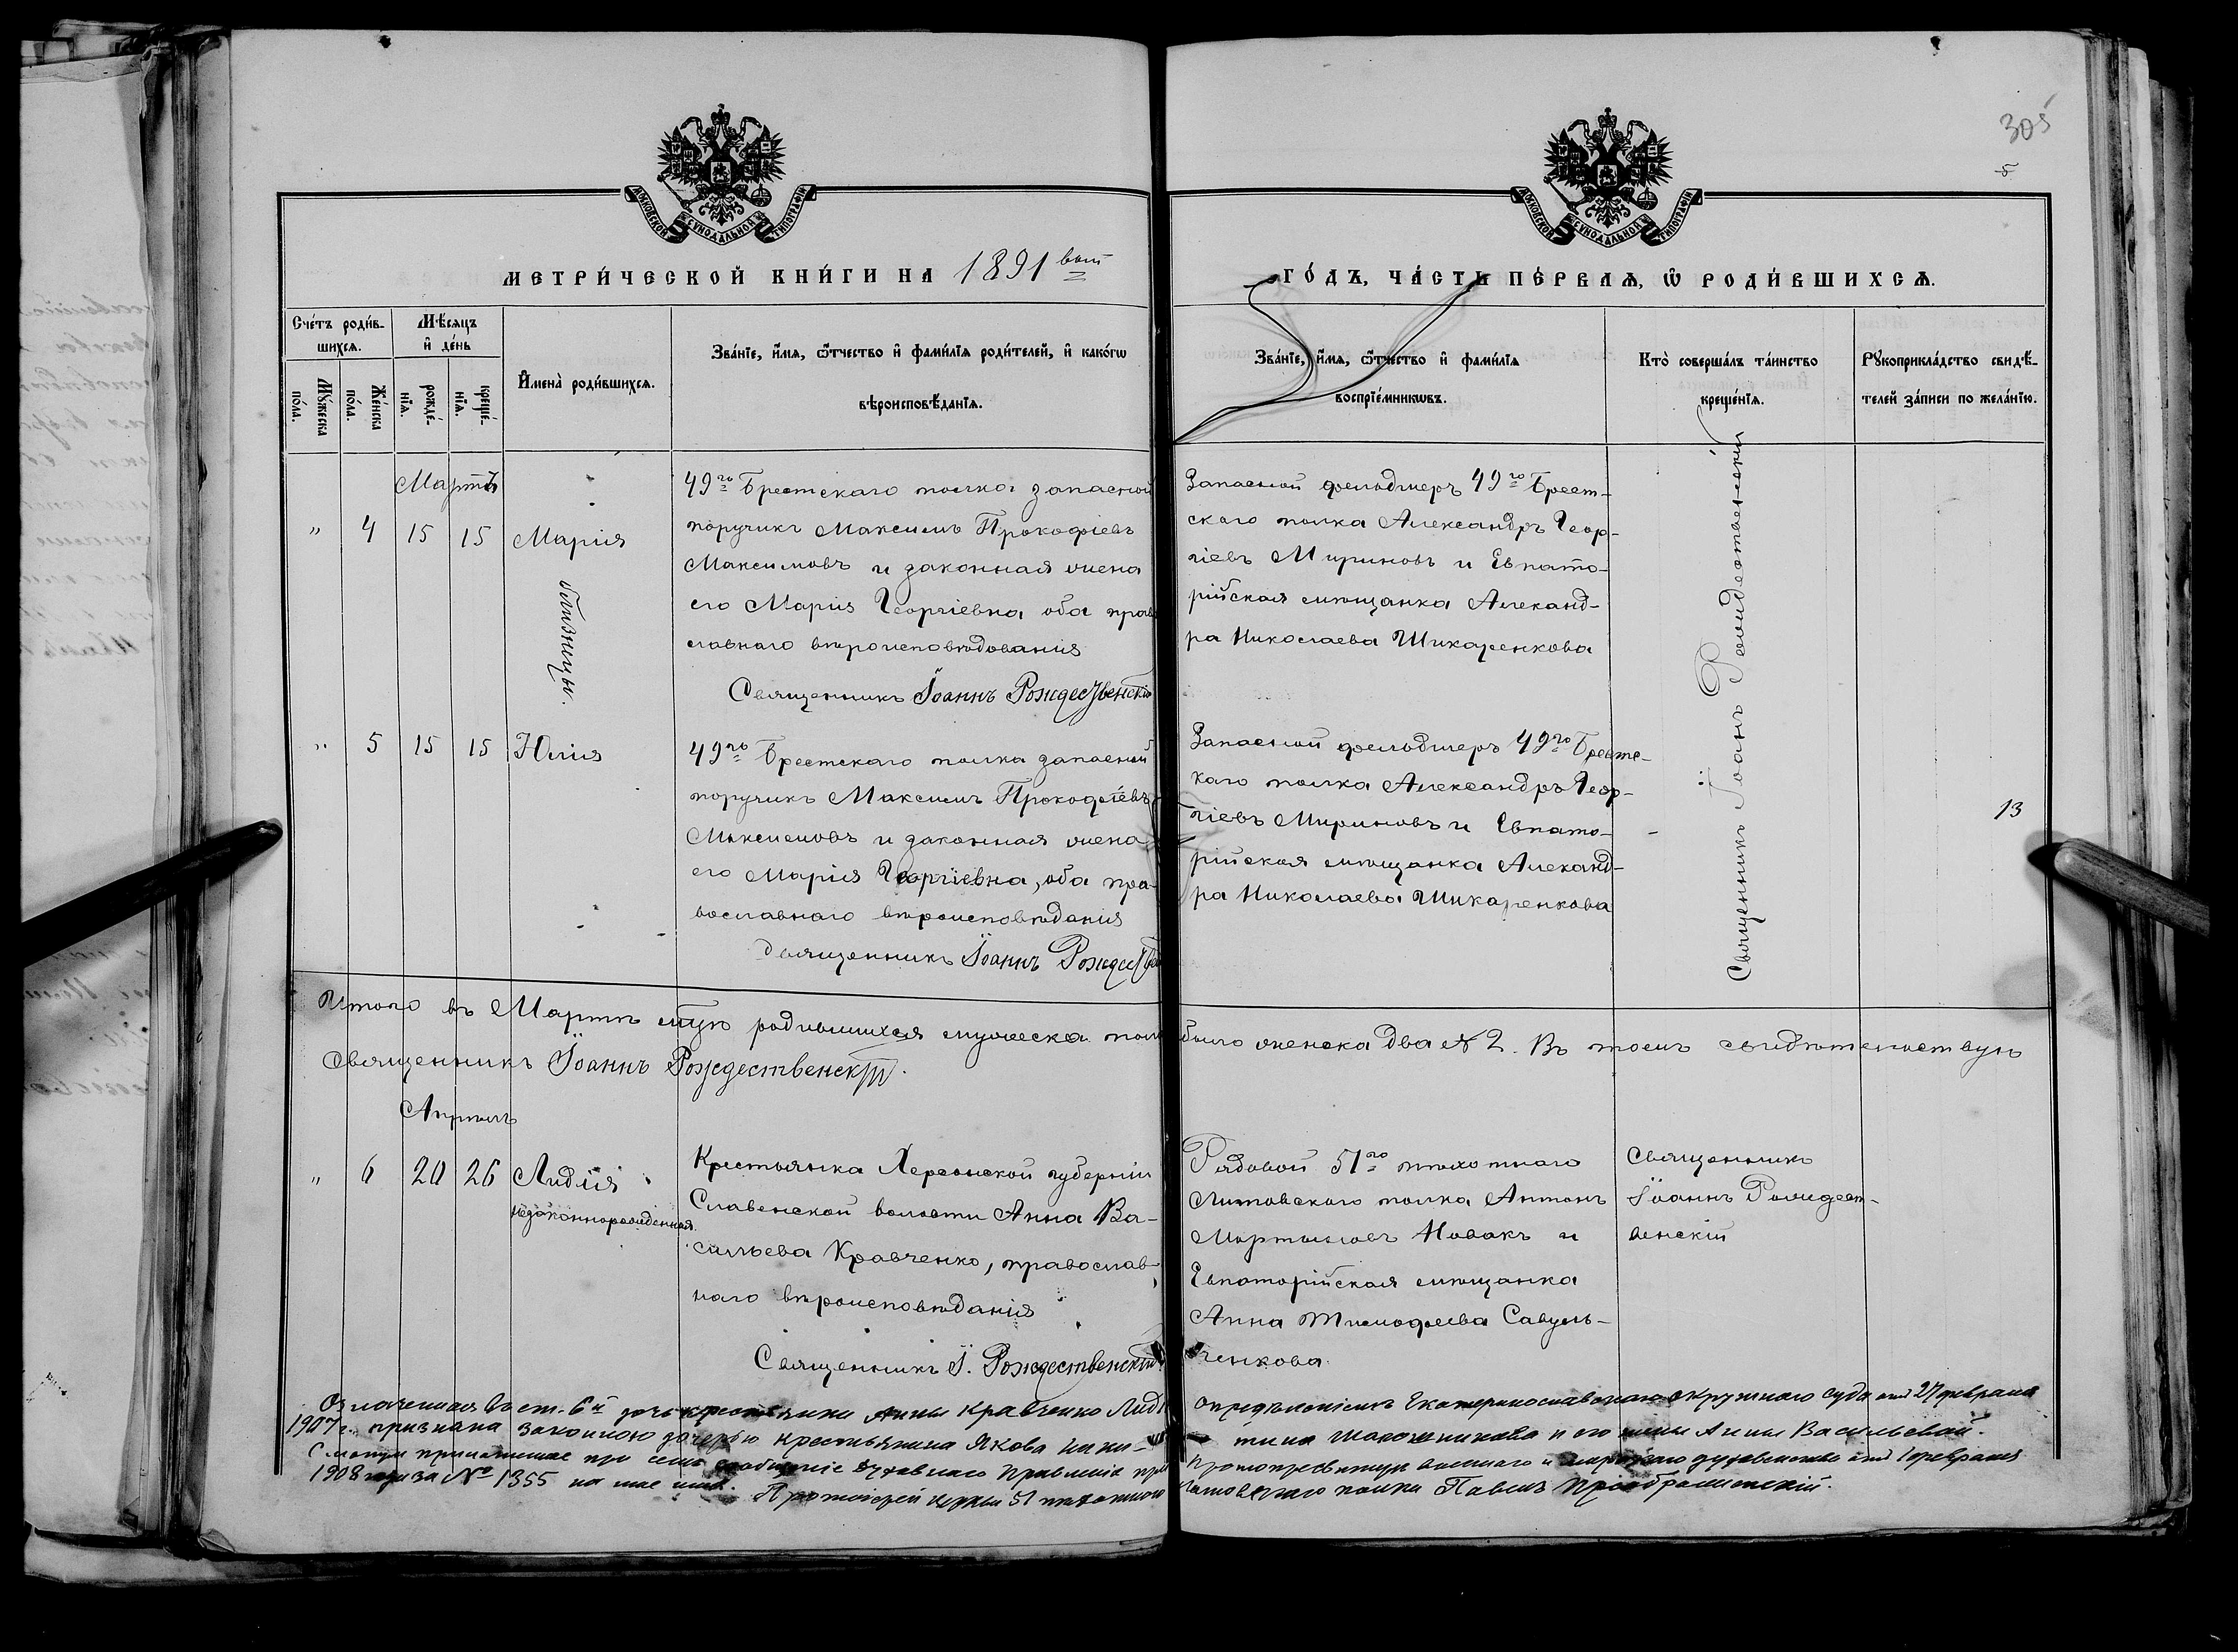 305
5
МОСКОВСКОЙ СУНОДАЛЬНОЙ ТИПОГРАФІИ
МОСКОВСКОЙ СУНОДАЛЬНОЙ ТИПОГРАФІИ
МЕТРИ́ЧЕСКОЙ КНИ́ГИ НА 1891 вый
ГО́ДЪ, ЧА́СТЬ ПЕ́РВАѦ, Ѡ҆ РОДИ́ВШИХСѦ.
Сче́тъ роди́в-
шихсѧ.
Мѣ́сѧцъ
и҆ де́нь
Мꙋ́жеска
по́ла.
Же́нска
по́ла.
рожде́-
нїѧ.
креще́-
нїѧ.
И҆мена̀ роди́вшихсѧ.
Зва́нїе, и҆́мѧ, ѻ҆́тчество и҆ фами́лїѧ роди́телей, и҆ како́гѡ
вѣроисповѣ́данїѧ.
Зва́нїе, и҆́мѧ, ѻ҆́тчество и҆ фами́лїѧ
воспрїе́мникѡвъ.
Кто̀ соверша́лъ та́инство
креще́нїѧ.
Рꙋкоприкла́дство свидѣ́-
телей за́писи по жела́нїю.
Мартъ
" 4 15 15 Марія
близнецы.
49го Брестскаго полка запасной
поручикъ Максимъ Прокофіевъ
Максимовъ и законная жена
его Марія Георгіевна оба право
славнаго вѣроисповѣдованія
Священникъ Іоаннъ Рождественскій
Запасной фельдшеръ 49го Брест-
скаго полка Александръ Геор-
гіевъ Мириновъ и Евпато-
рійская мѣщанка Александ-
ра Николаева Шикаренкова
Священникъ Іоанъ Рождественскій
" 5 15 15 Юлія
49го Брестскаго полка запасной
поручикъ Максимъ Прокофіевъ
Максимовъ и законная жена
его Марія Георгіевна, оба пра-
вославнаго вѣроисповѣданія
Священникъ Іоаннъ Рождестве
Запасной фельдшеръ 49го Брестс-
каго полка Александръ Геор-
гіевъ Мириновъ и Евпато-
рійская мѣщанка Александ-
ра Николаева Шикаренкова
13
Итого въ Мартѣ мцѣ родившихся мужеска пола было женска два № 2. Въ томъ свидѣтельствую
Священникъ Іоаннъ Рождественскій.
Апрѣль
" 6 20 26 Лидія
незаконнорожденная
Крестьянка Херсонской губерніи
Славенской волости Анна Ва-
сильева Кравченко, православ-
наго вѣроисповѣданія
Священникъ І. Рождественскій
Рядовой 51го пѣхотнаго
Литовскаго полка Антонъ
Мартыновъ Новакъ и
Евпаторійская мѣщанка
Анна Тимофеева Савуль-
ченкова
Священникъ
Іоаннъ Рождест-
венскій
Означенная въ ст. 6й дочь крестьянки Анны Кравченко Лидія опредѣленіемъ Екатеринославскаго Окружнаго Суда отъ 27 февраля
1907 г. признана законною дочерью крестьянина Якова и его жены Анны Васильевой.
Смотри при семъ сообщеніе Духовнаго Правленія при Протопресвитерѣ военнаго и морского духовенства отъ 1 февраля
1908 года за № 1355 на мое имя. Протоіерей церкви 51 пѣхотнаго Литовскаго полка Павелъ Преображенскій.